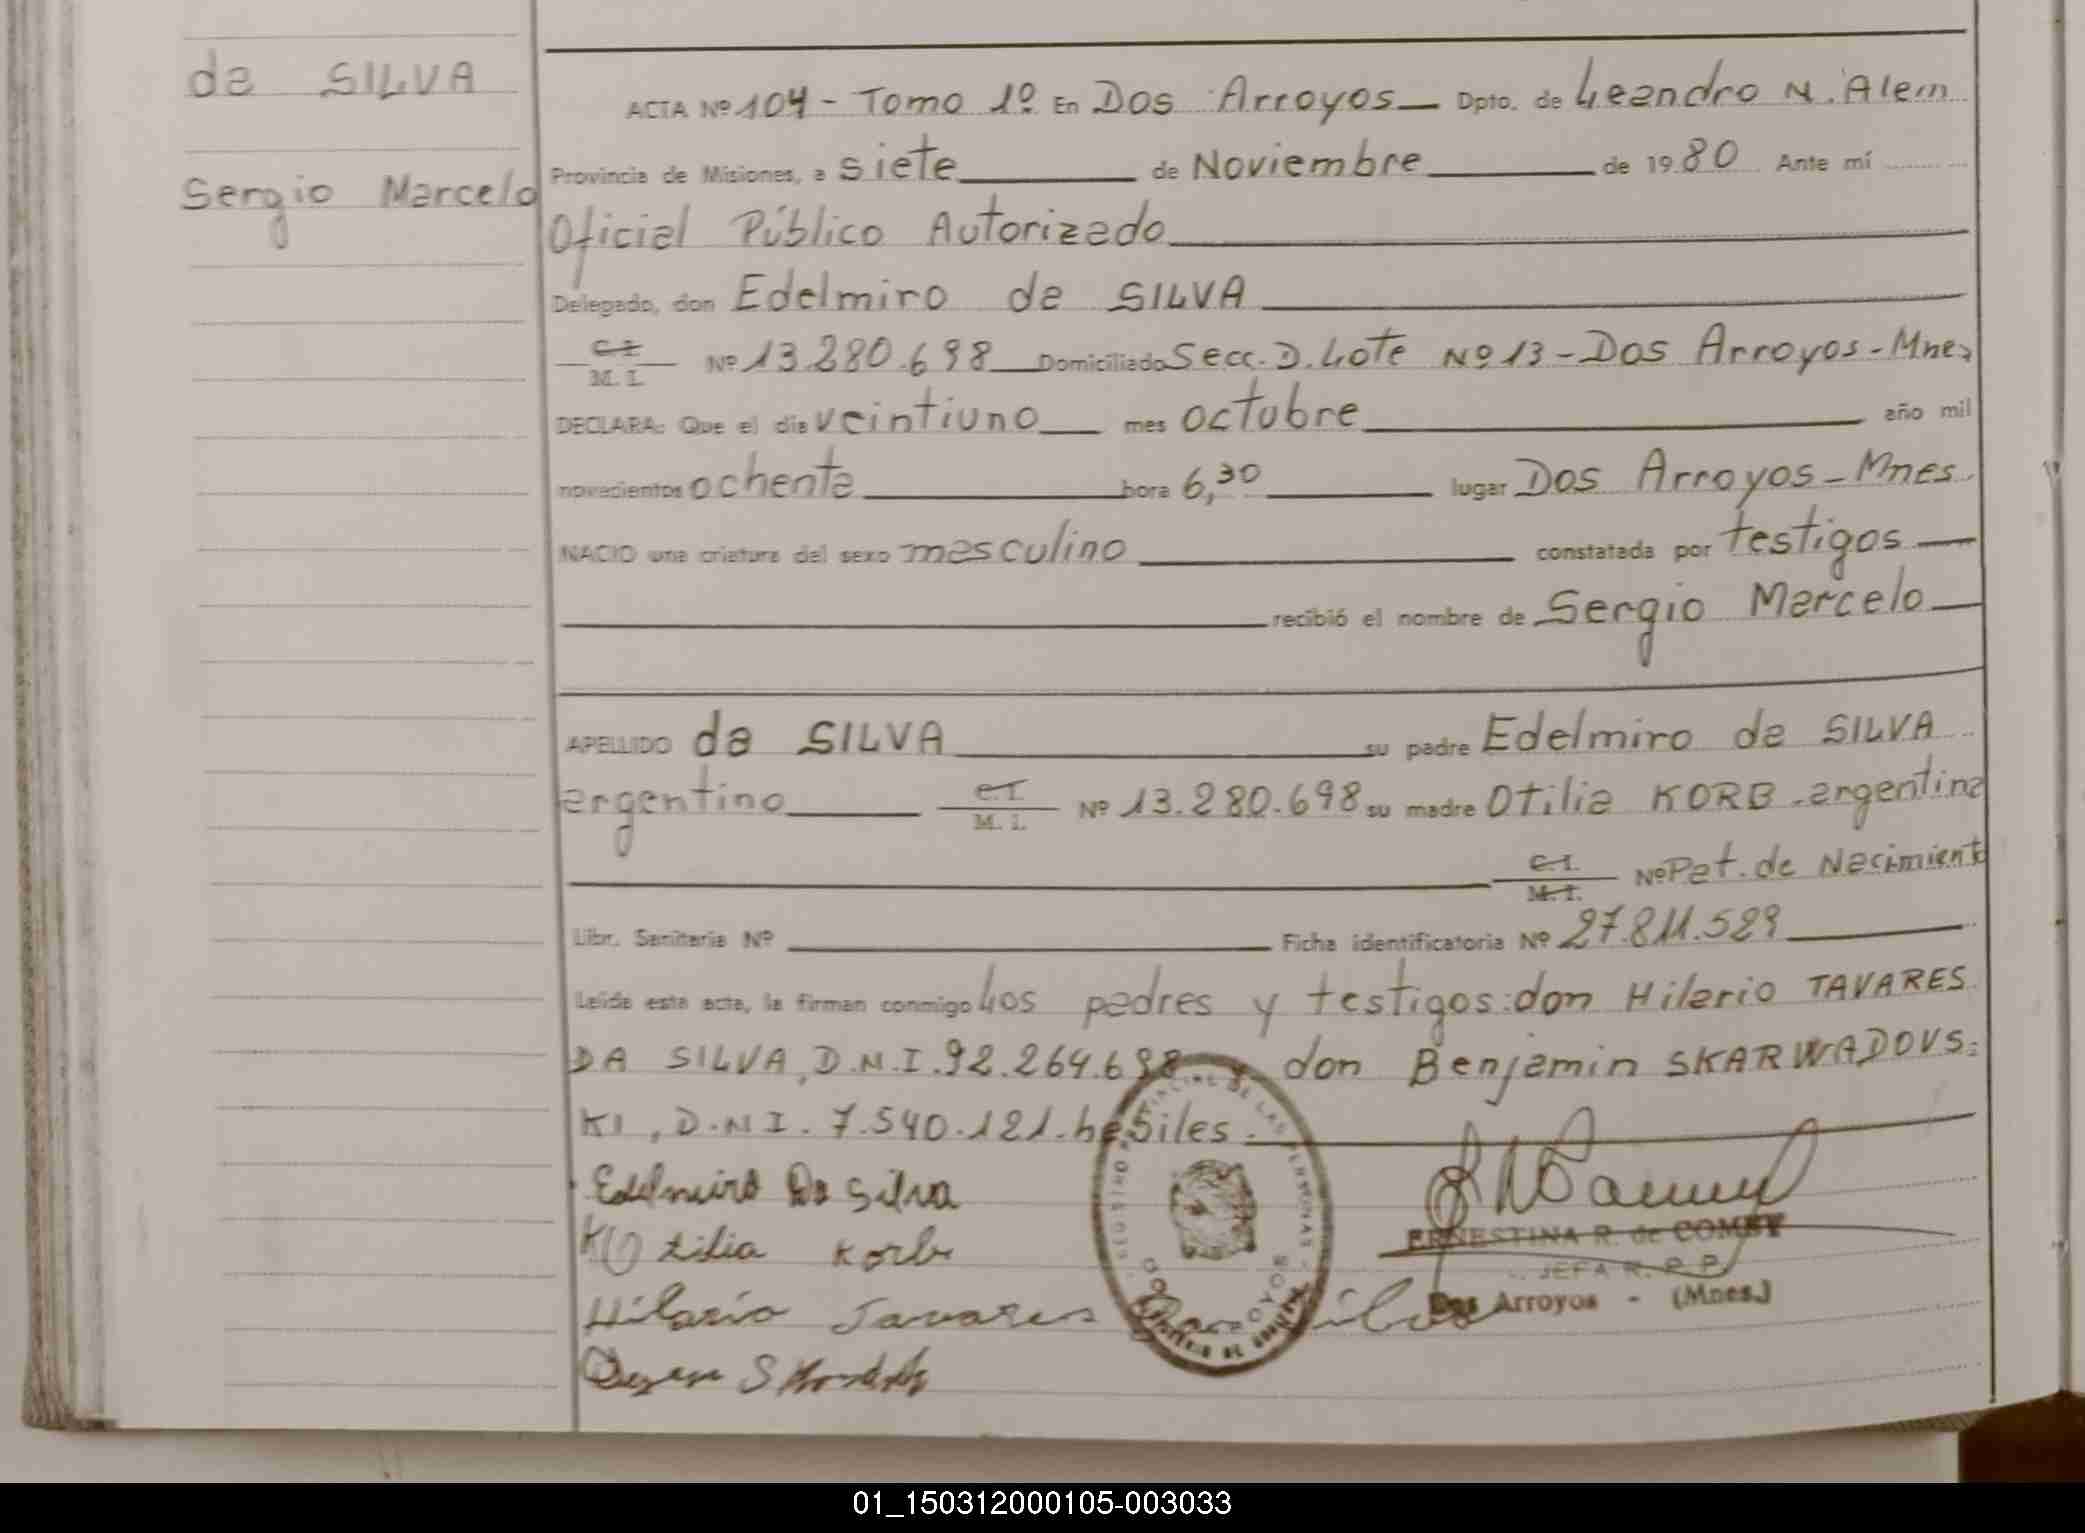 de SILVA
Sergio Marcelo
ACTA Nº 104 - Tomo 1º En Dos Arroyos Dpto. de Leandro N. Alem
Provincia de Misiones, a siete de Noviembre de 1980 Ante mí
Oficial Público Autorizado
Delegado, don Edelmiro de SILVA
C I
M. I. Nº 13.280.698 Domiciliado Secc. D. Lote Nº 13 - Dos Arroyos - Mnes
DECLARA: Que el día veintiuno mes octubre año mil
novecientos ochenta hora 6,30 lugar Dos Arroyos - Mnes.
NACIO una criatura del sexo masculino constatada por testigos
recibió el nombre de Sergio Marcelo
APELLIDO da SILVA su padre Edelmiro de SILVA
argentino C.I.
M. I. Nº 13.280.698 su madre Otilia KORB - argentina
C.I.
M. I. Nº Pat. de Nacimient
Libr. Sanitaria Nº Ficha identificatoria Nº 27.811.529
Leída esta acta, la firman conmigo Los padres y testigos: don Hilario TAVARES
DA SILVA, D.N.I. 92.264.698 don Benjamin SKARWADOVS=
KI, D.N.I. 7.540.121. hábiles.
Edelmiro Da Silva
Otilia Korb
Hilario Tavares Da Silva
ERNESTINA R. de COMBY
JEFA R. P. P.
Dos Arroyos - (Mnes.)
REGISTRO PROVINCIAL DE LAS PERSONAS
DOS ARROYOS
01_150312000105-003033